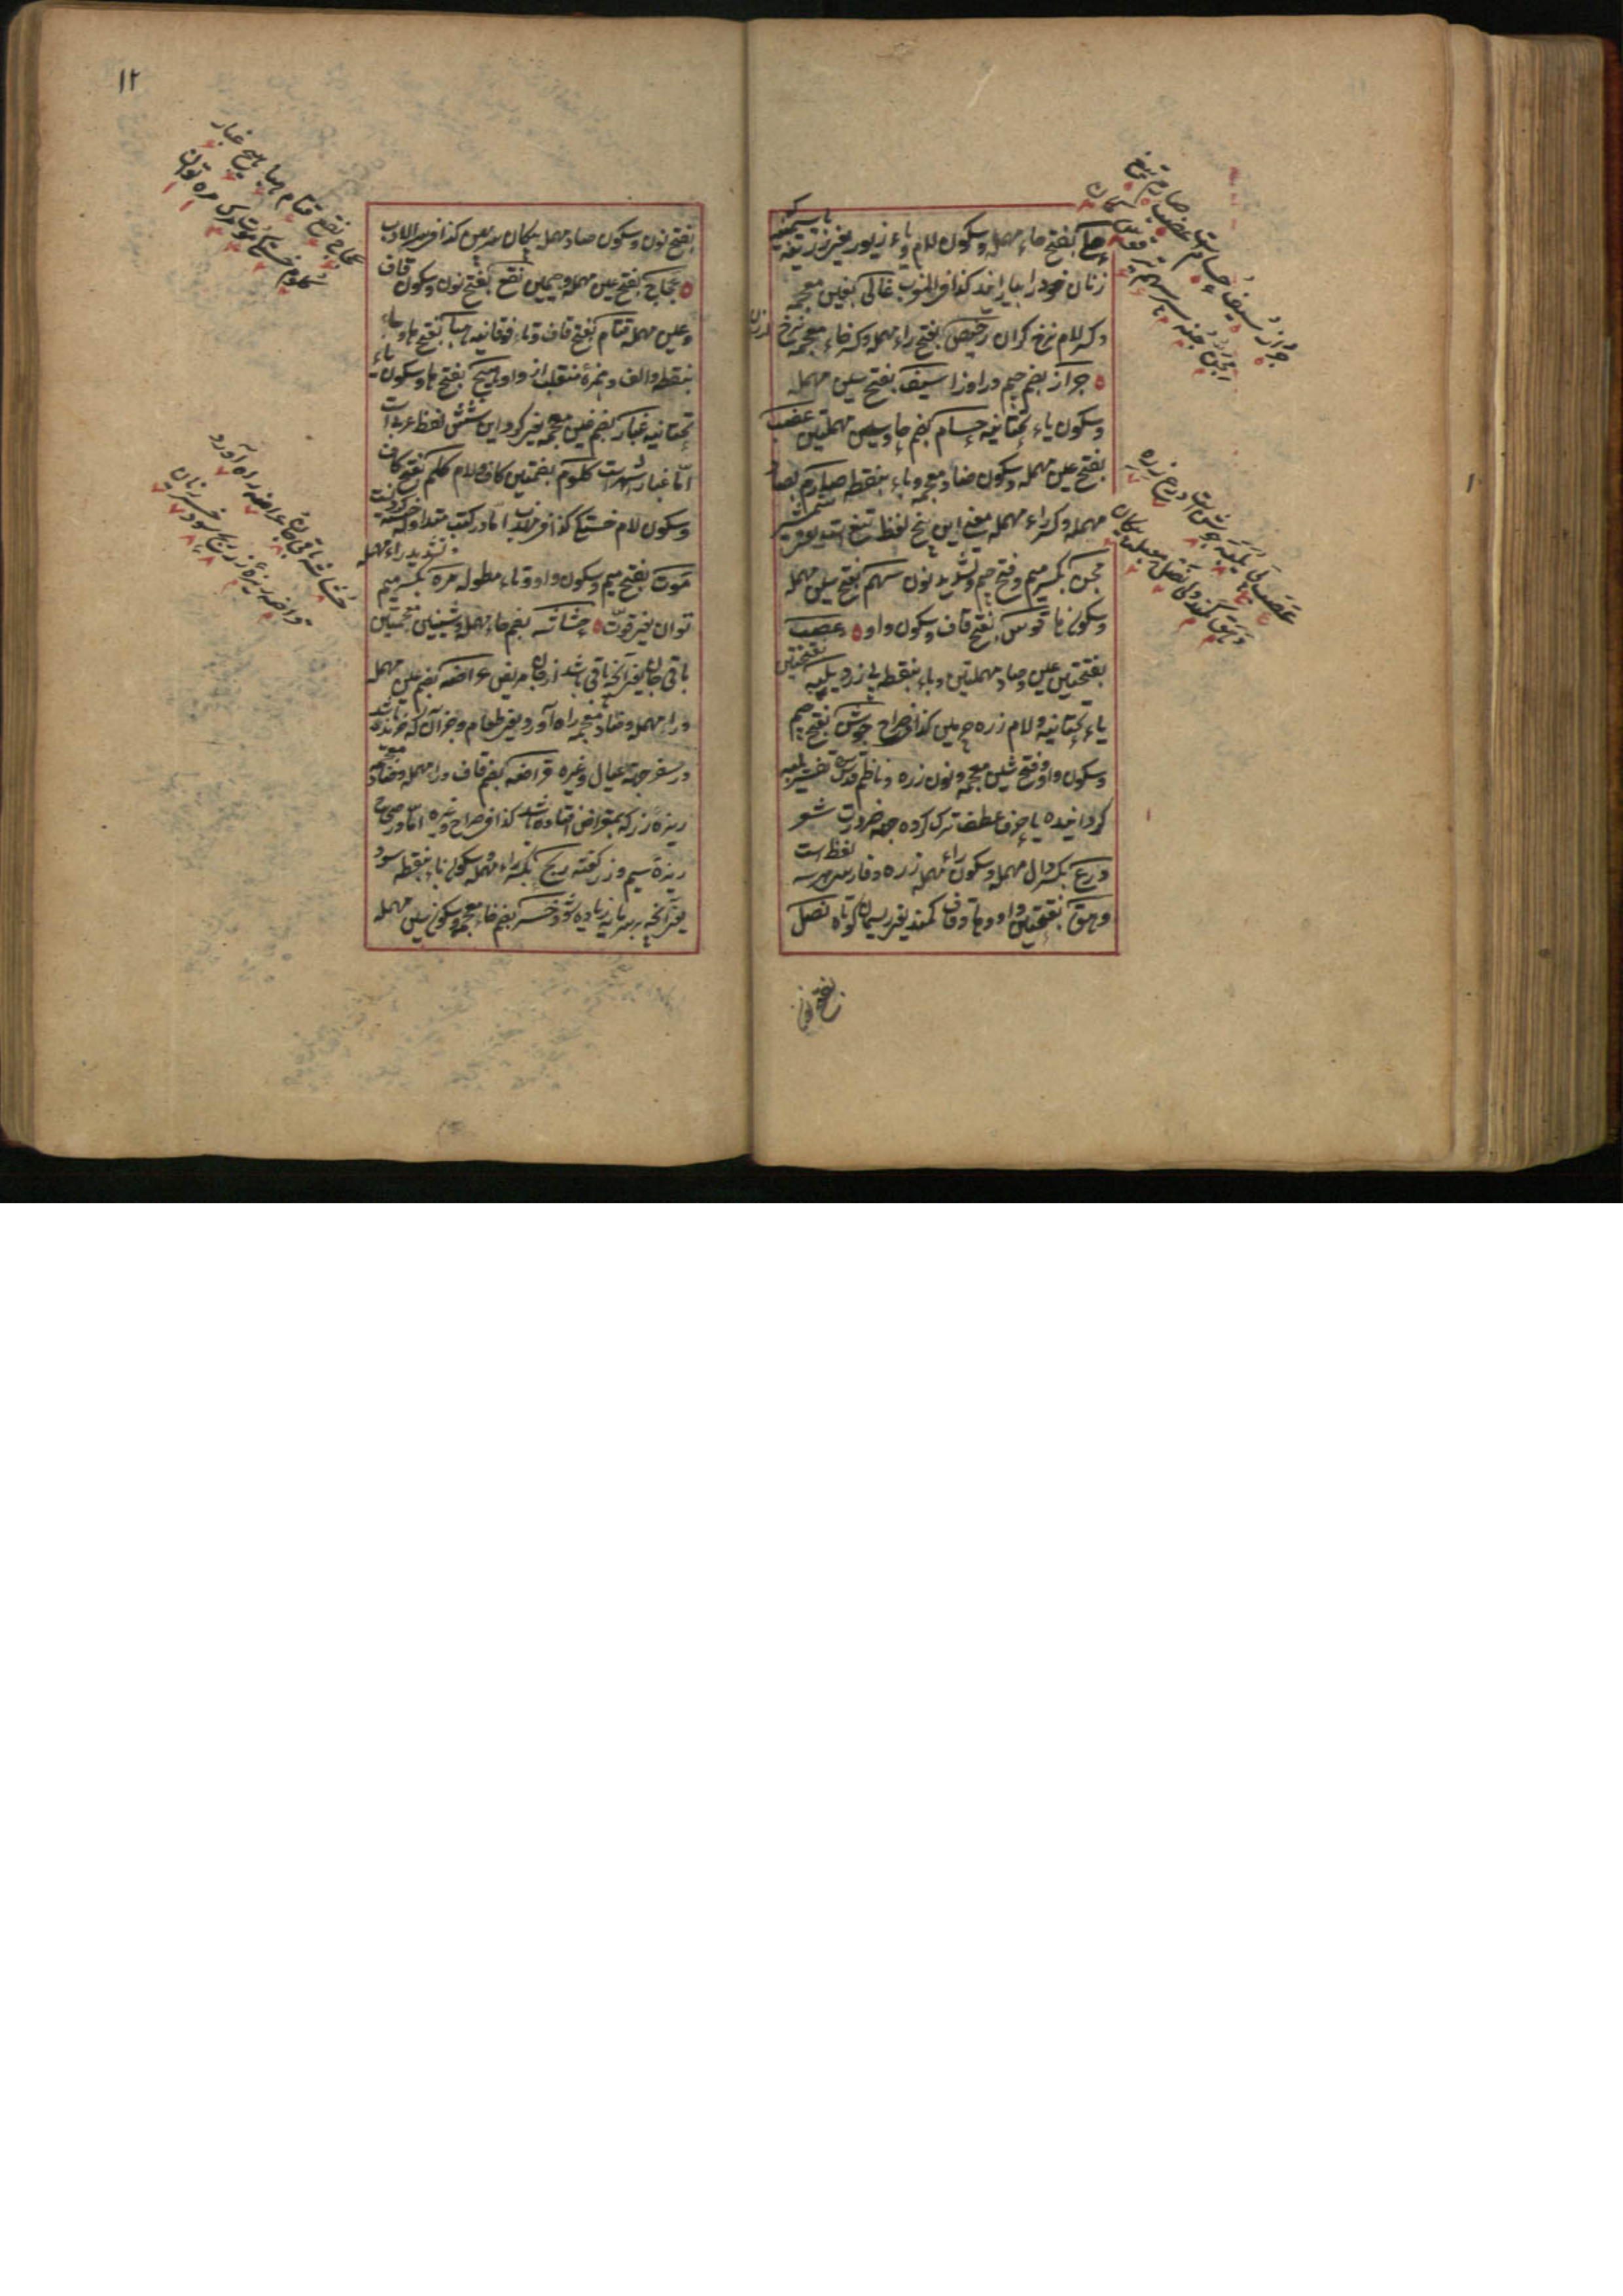 حلی بفتح حاء مهمله و سکون لام و یاء زیور یعنی زر زینه
زنان خود را بیارایند کذا فی المنوب غالی بغین معجمه
و کسر لام نرخ گران رخیص بفتح راء مهمله و کسر خاء معجمه نرخ ارزان
جراز بضم جیم و راء و زا سیف بفتح سین مهمله
و سکون یاء تحتانیه حسام بضم حا و سین مهملتین عضب
بفتح عین مهمله و سکون ضاد معجمه و باء بنقطه صارم بصاد
مهمله و کسر راء مهمله معنی این پنج لفظ تیغ است یعنی شمشیر
مجن بکسر میم و فتح جیم و تشدید نون سهم بفتح سین مهمله
و سکون ها قوس بفتح قاف و سکون واو عصب
بفتحتین عین و صاد مهملتین و باء بنقطه پی زرد یلبه بفتحتین
یاء تحتانیه و لام زره چرمین کذا فی صراح جوشن بفتح جیم
و سکون واو و فتح شین معجمه و نون زره و ناظم قدس سره تفسیر یلبه
گردانیده یا حرف عطف ترک کرده جهة ضرورت شعر
درع بکسر دال مهمله و سکون راء مهمله زره و فارسی هر سه لفظ است
وهق بفتحتین واو و ها و قاف کمند یعنی ریسمان کوتاه نصل
بفتح نون
جراز سیف حسام است عضب صارم تیغ
مجن جنه سپر سهم تیر قوس کمان
عصب پی یلبه جوشن است درع زره
وهق کمند ولی نصل معبله پیکان
۱۲
بفتح نون و سکون صاد مهمله پیکان سرپهن کذا فی مهذب الادب
عجاج بفتح عین مهمله و جیمین نقع بفتح نون و سکون قاف
و عین مهمله قتام بفتح قاف و تاء فوقانیه هبا بفتح ها و باء
بنقطه و الف و همزه منقلب از واو هیج بفتح ها و سکون یاء
تحتانیه غبار بضم غین معجمه یعنی گرد این شش لفظ عربی است
اما غبار شهرت کلوم بضمتین کاف و لام کلم بفتح کاف
و سکون لام خستگی کذا فی مهذب اما در کتب متداوله خسته گردیدن است
موت بفتح میم و سکون واو و تاء مطوله مره بکسر میم و تشدید راء مهمله
توان یعنی قوت حشاشه بضم حاء مهمله و شینین منجمتین
باقی جان یعنی آنچه باقی باشد از جان مریض عراضه بضم عین مهمله
و راء مهمله و ضاد معجمه راه آورد یعنی طعام و جز آن که خرنده باشد
در سفر جهة عیال و غیره قراضه بضم قاف و راء مهمله و ضاد معجمه
ریزه زر که بمقراض افتاده باشد کذا فی صراح و غیره اما در صحاح
ریزه سیم و زر گفته ربح بکسر راء مهمله و سکون باء بنقطه سود
یعنی آنچه بر سرمایه زیاده شود خسر بضم خاء معجمه و سکون سین مهمله
عجاج نقع قتام هبا هیج غبار
کلوم خستگی موت مرگ مره توان
حشاشه باقی جان عراضه راه آورد
قراضه ریزه زر ربح سود خسر زیان